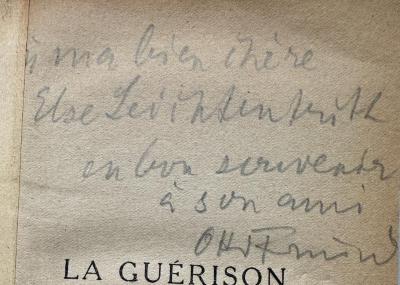 à ma bien chère
Else Leichtentritt
en bon souvenir
à son ami
Otto
LA GUÉRISON